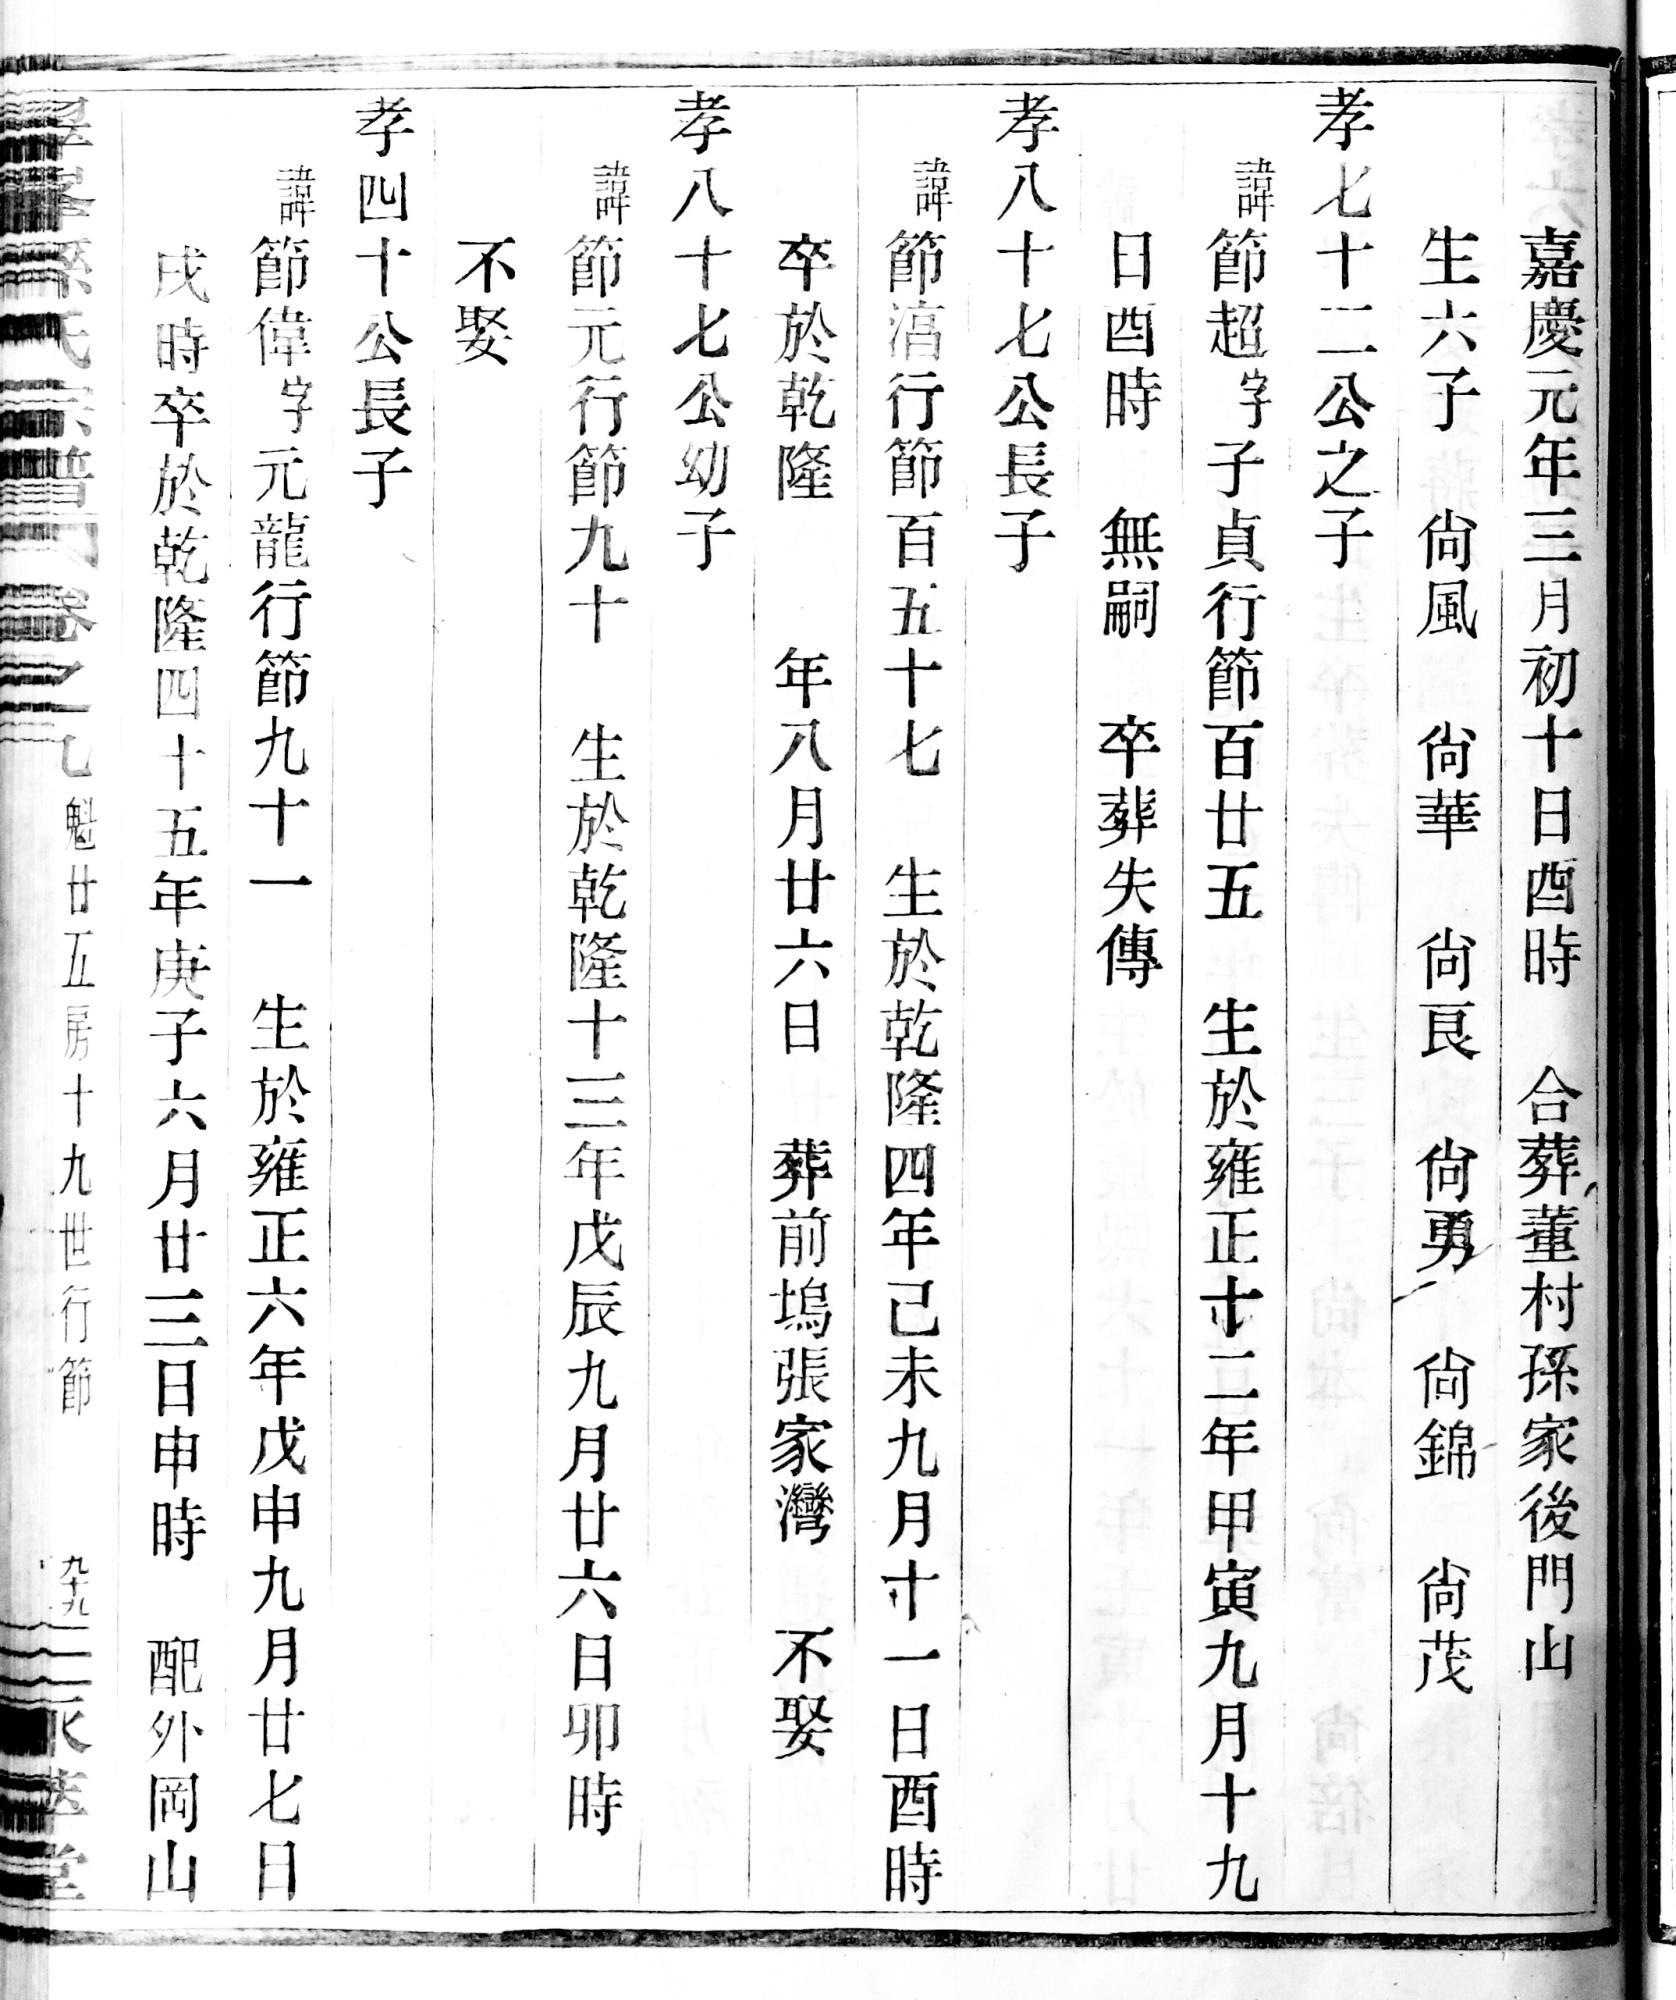 嘉慶元年三月初十日酉時　合葬董村孫家後門山
生六子　尙風　尙華　尙艮　尙勇　尙錦　尙茂
孝七十二公之子
諱節超字子貞行節百廿五　生於雍正十二年甲寅九月十九
日酉時　無嗣　卒葬失傳
孝八十七公長子
諱節㵆行節百五十七　生於乾隆四年己未九月十一日酉時
卒於乾隆　年八月廿六日　葬前塢張家灣　不娶
孝八十七公幼子
諱節元行節九十　生於乾隆十三年戊辰九月廿六日卯時
不娶
孝四十公長子
諱節偉字元龍行節九十一　生於雍正六年戊申九月廿七日
戌時卒於乾隆四十五年庚子六月廿三日申時　配外岡山
孫氏宗譜　卷之一　魁廿五房十九世行節　九十九　萃堂